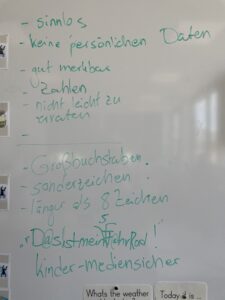 - sinnlos
- keine persönlichen Daten
- gut merkbar
- Zahlen
- nicht leicht zu
erraten
-
- Großbuchstaben
- sonderzeichen
- länger als 8 Zeichen
"D@sIstmein Fahrrad!"
kinder-mediensicher
Whats the weather
Today is